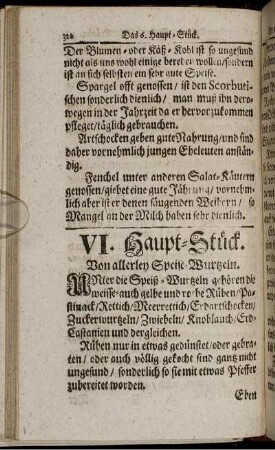 312 Das 6. Haupt-Stück.
Der Blumen- oder Käß-Kohl ist so ungesund
nicht als uns wohl einige bereden wollen/sondern
ist an sich selbsten ein sehr gute Speise.
Spargel offt genossen/ ist den Scorbuti-
schen sonderlich dienlich/ man muß ihn dero-
wegen in der Jahrzeit da er hervorzukommen
pfleget/täglich gebrauchen.
Artschocken geben gute Nahrung/und sind
daher vornehmlich jungen Eheleuten anstän-
dig.
Fenchel unter anderen Salat-Käutern
genossen/giebet eine gute Jährung/ vornehm-
lich aber ist er denen säugenden Weibern/ so
Mangel an der Milch haben sehr dienlich.
VI. Haupt-Stück.
Von allerley Speise-Wurtzeln.
UNter die Speiß-Wurtzeln gehören die
weisse-auch gelbe und rohe Rüben/Pa-
stinack/Rettich/Meerrettich/Erdartschocken/
Zuckerwurtzeln/Zwiebeln/Knoblauch/Erd-
Castanien und dergleichen.
Rüben nur in etwas gedünstet/oder gebra-
ten/ oder auch völlig gekocht sind gantz nicht
ungesund/ sonderlich so sie mit etwas Pfeffer
zubereitet worden.
Eben